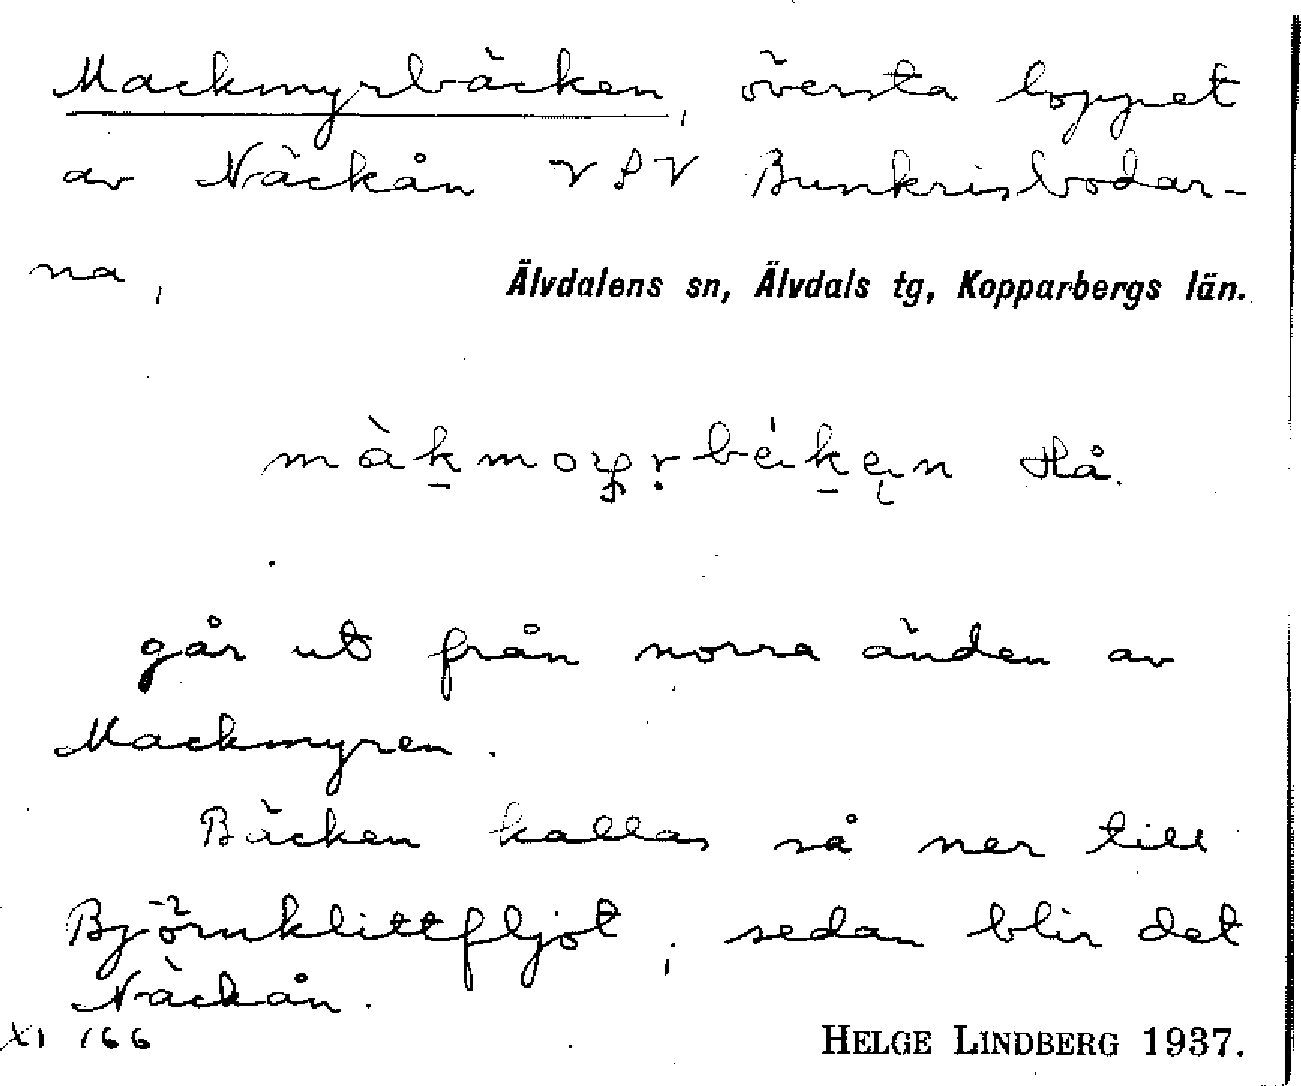 Mackmyrbäcken, översta loppet
av Näckån VSV Bunkrisbodar-
na,
Älvdalens sn, Älvdals tg, Kopparbergs län.
Hå.
går ut från norra änden av
Mackmyren.
Bäcken kallas så ner till
Björnklittfljot, sedan blir det
Näckån.
XI 166
HELGE LINDBERG 1937.